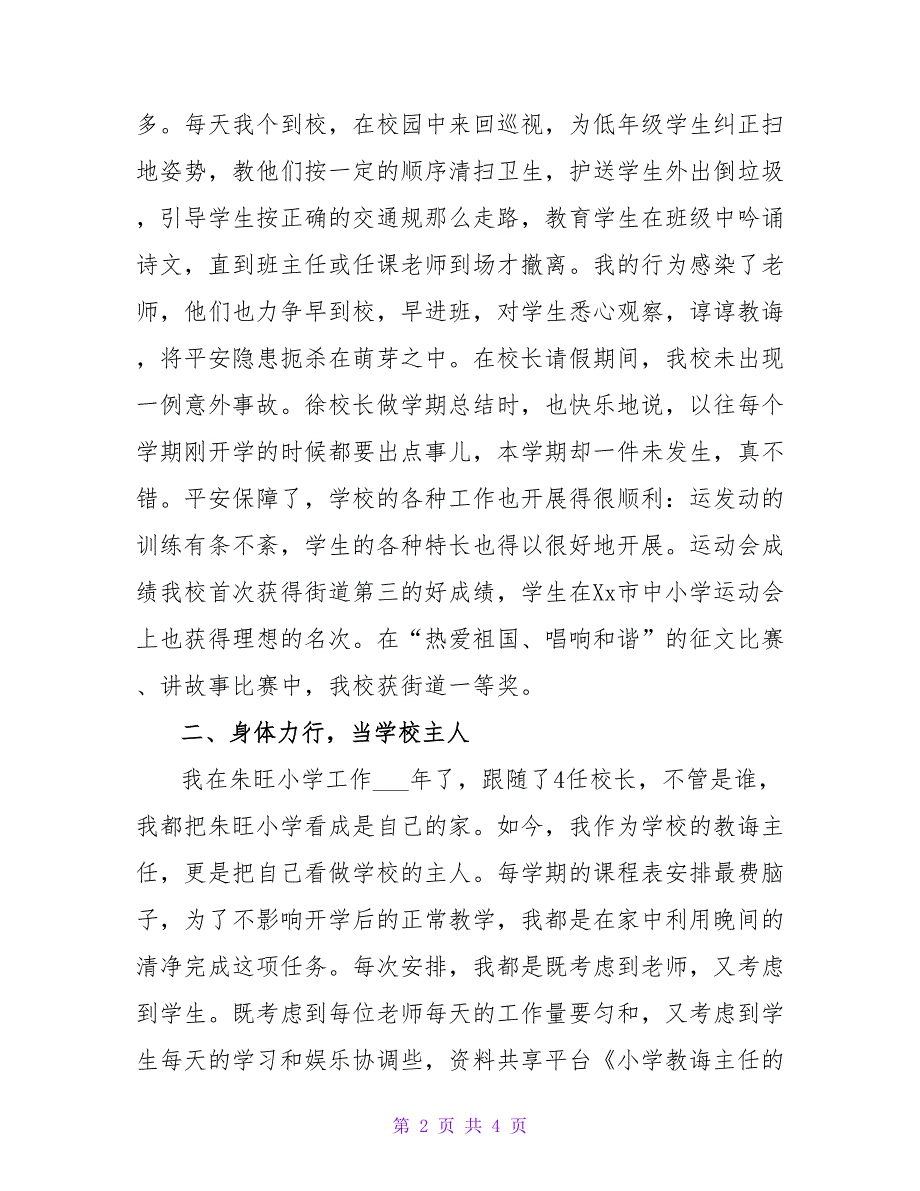 多。每天我个到校，在校园中来回巡视，为低年级学生纠正扫
地姿势，教他们按一定的顺序清扫卫生，护送学生外出倒垃圾
，引导学生按正确的交通规那么走路，教育学生在班级中吟诵
诗文，直到班主任或任课老师到场才撤离。我的行为感染了老
师，他们也力争早到校，早进班，对学生悉心观察，谆谆教诲
，将平安隐患扼杀在萌芽之中。在校长请假期间，我校未出现
一例意外事故。徐校长做学期总结时，也快乐地说，以往每个
学期刚开学的时候都要出点事儿，本学期却一件未发生，真不
错。平安保障了，学校的各种工作也开展得很顺利：运发动的
训练有条不紊，学生的各种特长也得以很好地开展。运动会成
绩我校首次获得街道第三的好成绩，学生在Xx市中小学运动会
上也获得理想的名次。在“热爱祖国、唱响和谐”的征文比赛
、讲故事比赛中，我校获街道一等奖。
二、身体力行，当学校主人
我在朱旺小学工作___年了，跟随了4任校长，不管是谁，
我都把朱旺小学看成是自己的家。如今，我作为学校的教诲主
任，更是把自己看做学校的主人。每学期的课程表安排最费脑
子，为了不影响开学后的正常教学，我都是在家中利用晚间的
清净完成这项任务。每次安排，我都是既考虑到老师，又考虑
到学生。既考虑到每位老师每天的工作量要匀和，又考虑到学
生每天的学习和娱乐协调些，资料共享平台《小学教诲主任的
第 2 页 共 4 页